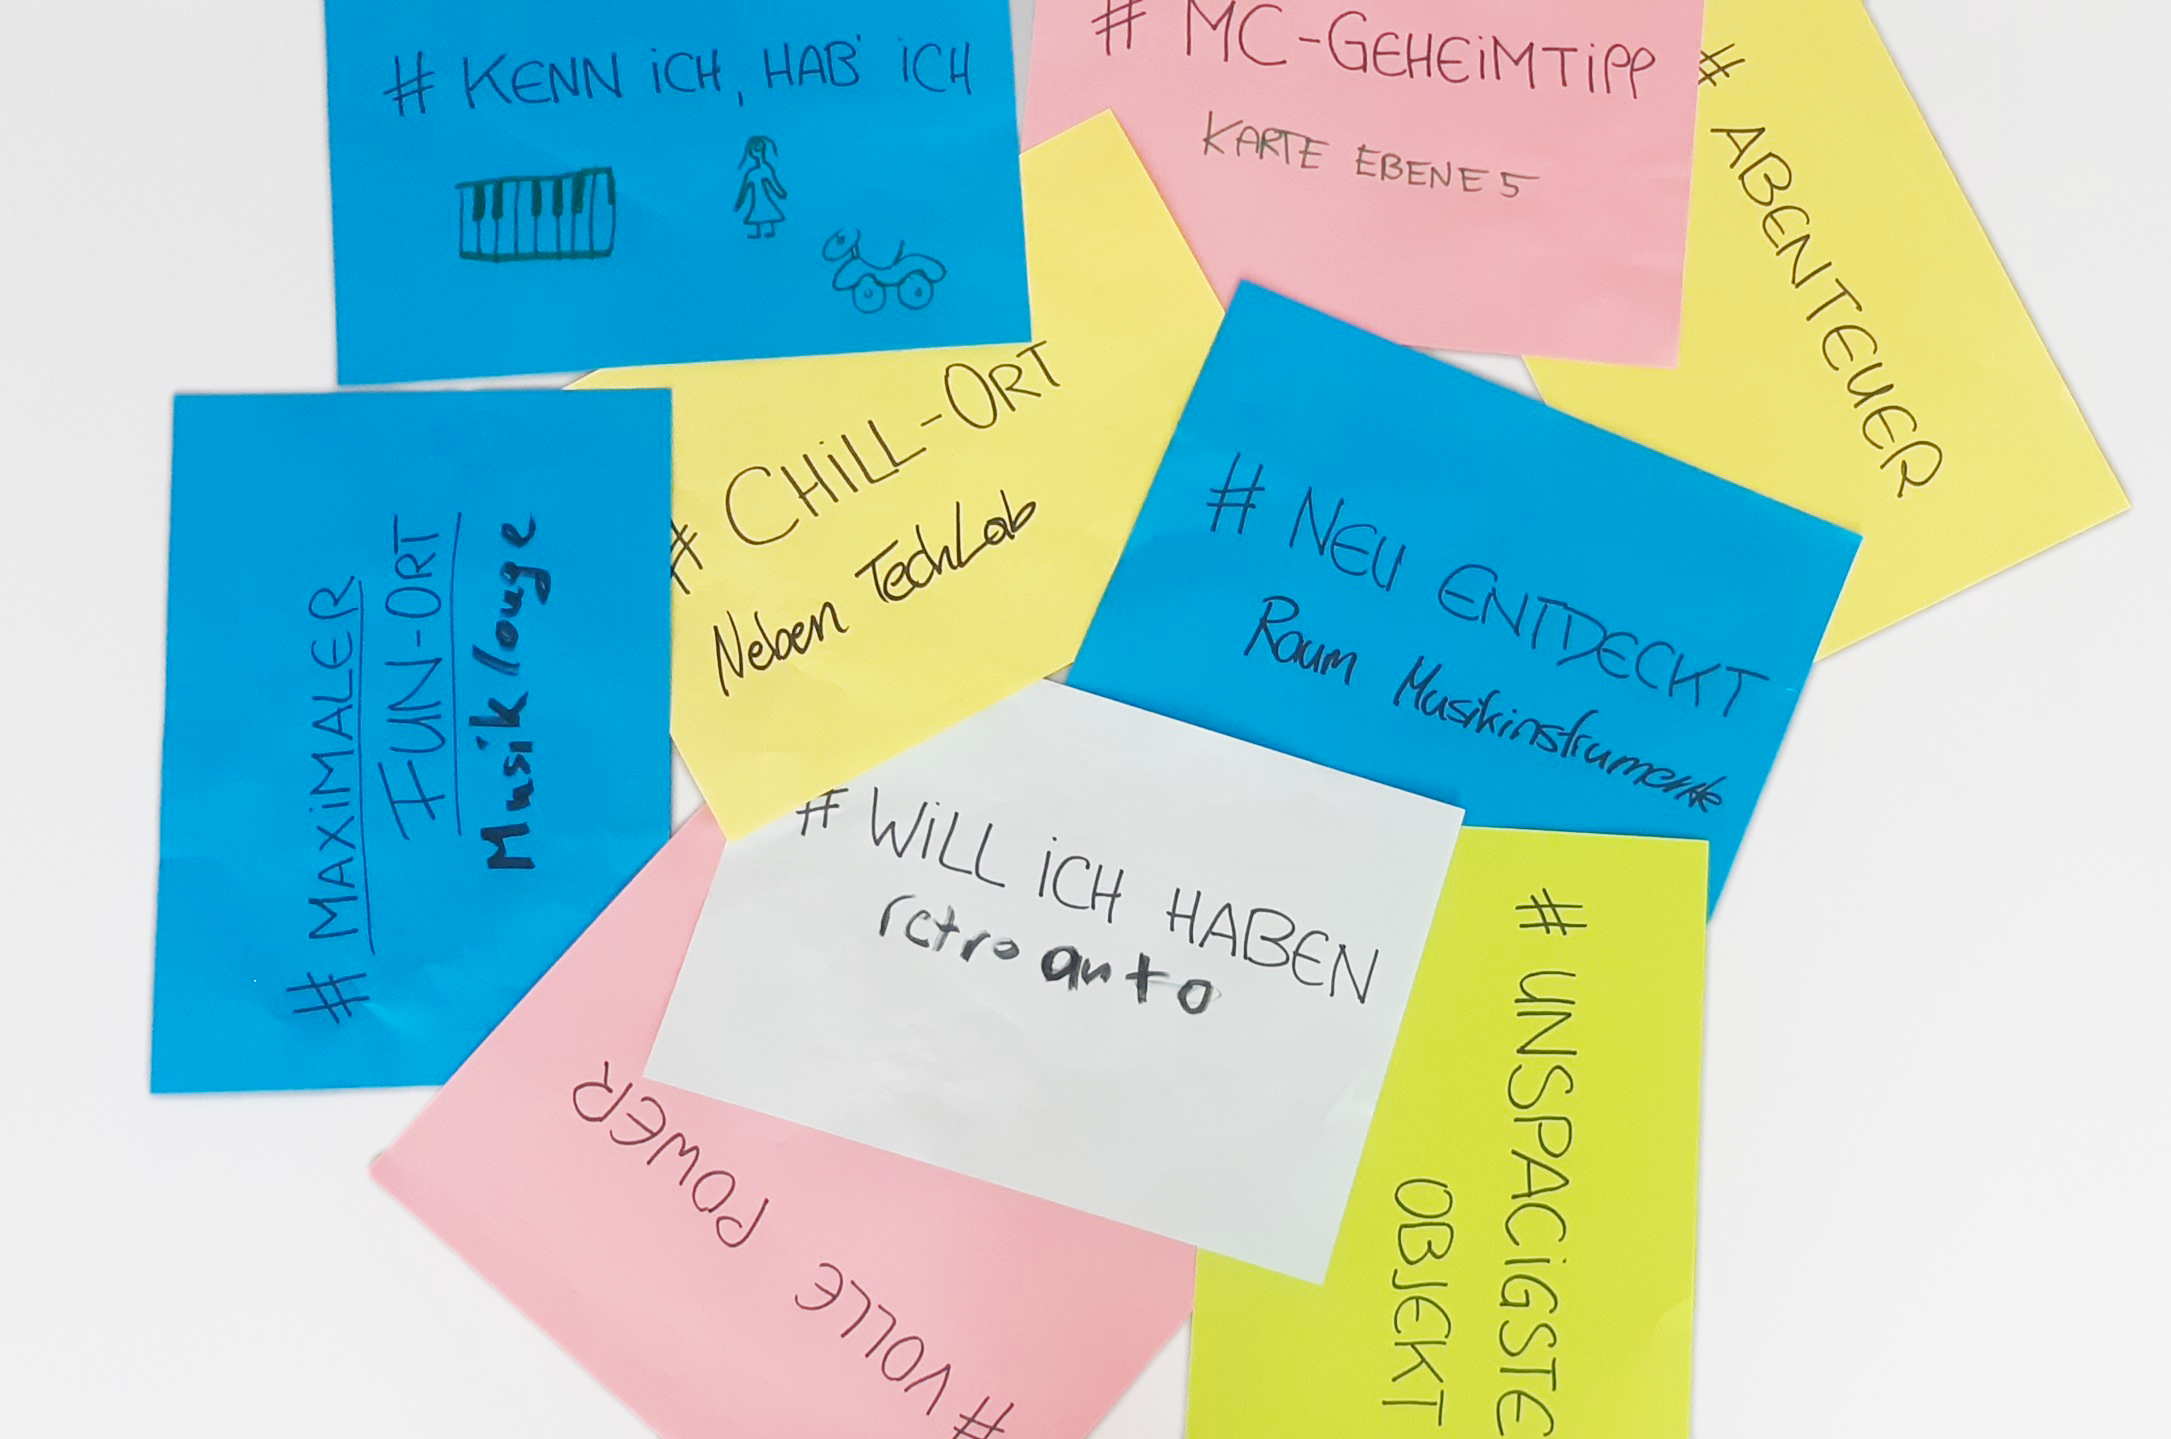 # KENN ICH, HAB' ICH
# MC-GEHEIMTIPP
KARTE EBENE 5
# ABENTEUER
# CHILL-ORT
Neben TechLab
# NEU ENTDECKT
Raum Musikinstrumente
# MAXIMALER
FUN-ORT
Musiklouge
# WILL ICH HABEN
retro auto
# VOLLE POWER
# UNSPACIGSTE
OBJEKT